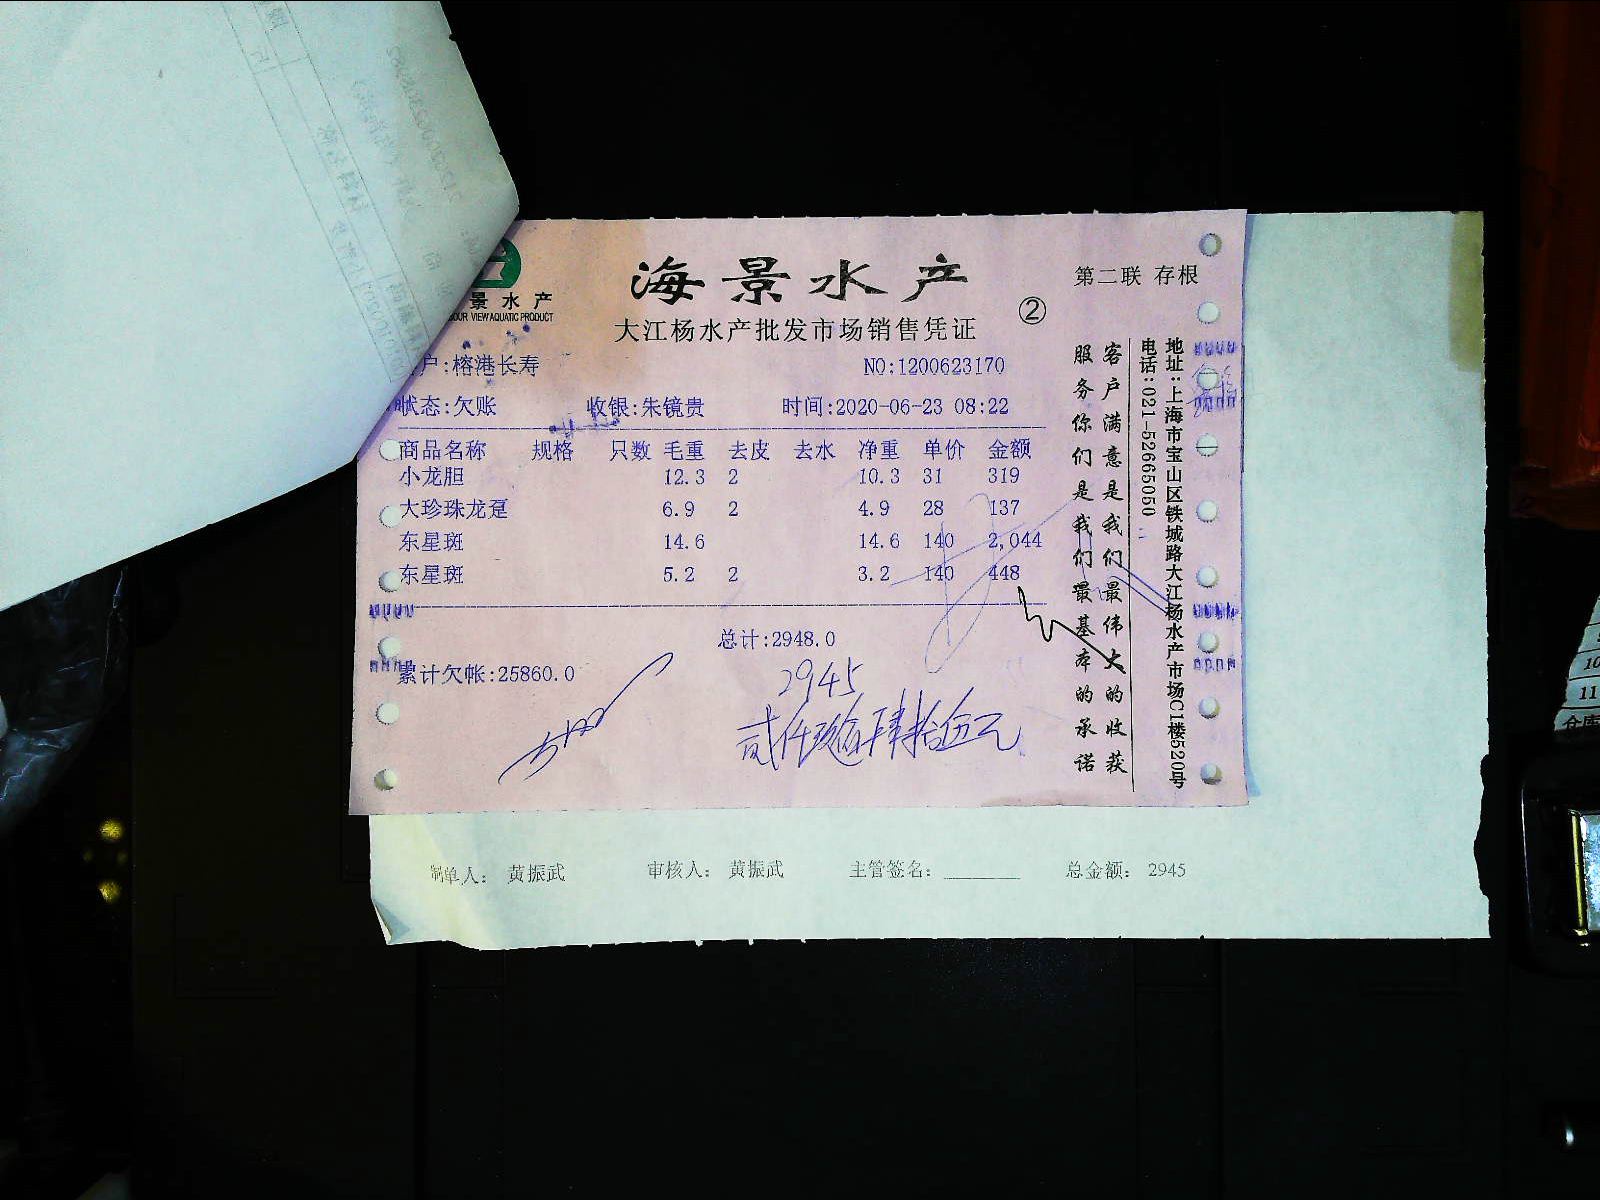 景水产
OUR VIEW AQUATIC PRODUCT
海景水产
大江杨水产批发市场销售凭证
②
第二联 存根
户:榕港长寿
NO:1200623170
状态:欠账 收银:朱镜贵 时间:2020-06-23 08:22
商品名称 规格 只数 毛重 去皮 去水 净重 单价 金额
小龙胆 12.3 2 10.3 31 319
大珍珠龙趸 6.9 2 4.9 28 137
东星斑 14.6 14.6 140 2,044
东星斑 5.2 2 3.2 140 448
总计:2948.0
累计欠帐:25860.0
2945
贰仟玖佰肆拾伍元
客户满意是我们最伟大的收获
服务你们是我们最基本的承诺
地址:上海市宝山区铁城路大江杨水产市场C1楼520号
电话:021-52665050
制单人: 黄振武 审核人: 黄振武 主管签名: 总金额: 2945
10
11
仓库